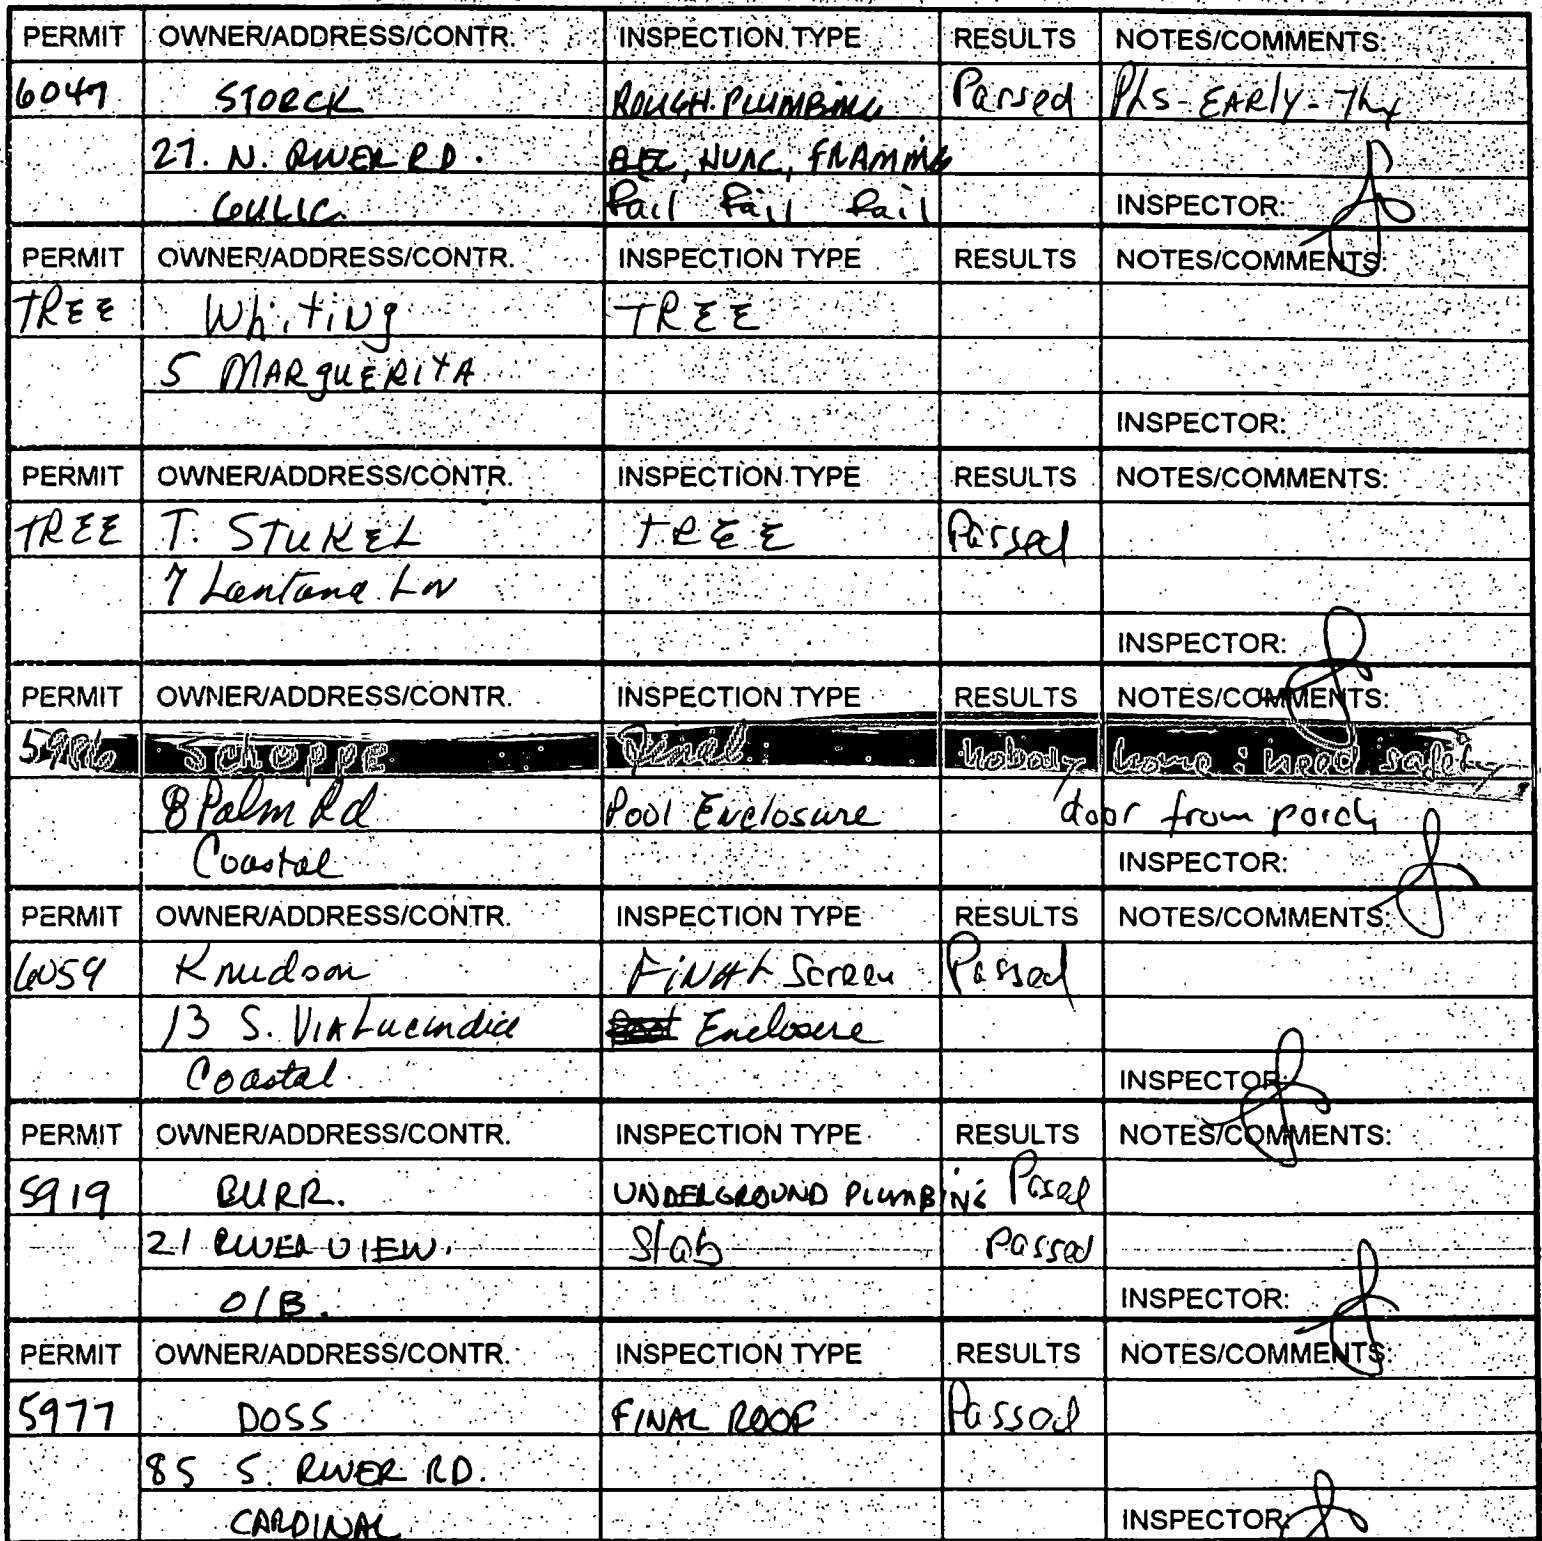 PERMIT OWNER/ADDRESS/CONTR. INSPECTION TYPE RESULTS NOTES/COMMENTS:
6047 STORCK ROUGH PLUMBING Passed Pls - EARly - Thx
27 N. RIVER RD. ELEC, HVAC, FRAMING
fail fail fail INSPECTOR:
PERMIT OWNER/ADDRESS/CONTR. INSPECTION TYPE RESULTS NOTES/COMMENTS:
TREE Whiting TREE
5 MARguERITA
INSPECTOR:
PERMIT OWNER/ADDRESS/CONTR. INSPECTION TYPE RESULTS NOTES/COMMENTS:
TREE T. STUKEL TREE Passed
7 Lantana Ln
INSPECTOR:
PERMIT OWNER/ADDRESS/CONTR. INSPECTION TYPE RESULTS NOTES/COMMENTS:
Schoppe Final nobody home : need safety
8 Palm Rd Pool Enclosure door from porch
Coastal INSPECTOR:
PERMIT OWNER/ADDRESS/CONTR. INSPECTION TYPE RESULTS NOTES/COMMENTS:
6059 Knudson FINAL Screen Passed
13 S. VIA Lucindia Enclosure
Coastal INSPECTOR:
PERMIT OWNER/ADDRESS/CONTR. INSPECTION TYPE RESULTS NOTES/COMMENTS:
5919 BURR. UNDERGROUND PLUMBING Passed
21 RIVER VIEW. Slab passed
O/B. INSPECTOR:
PERMIT OWNER/ADDRESS/CONTR. INSPECTION TYPE RESULTS NOTES/COMMENTS:
5977 DOSS FINAL ROOF Passed
85 S. RIVER RD.
CARDINAL INSPECTOR: